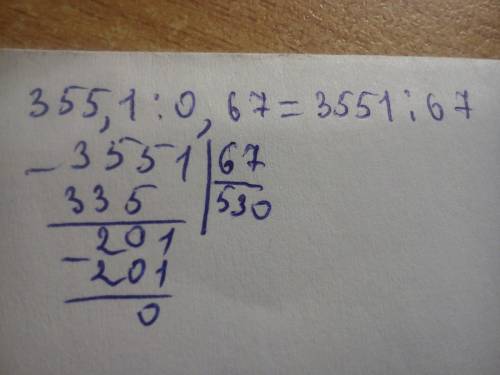 355,1:0,67=3551:67
-3551|67
335 |530
-201
201
0